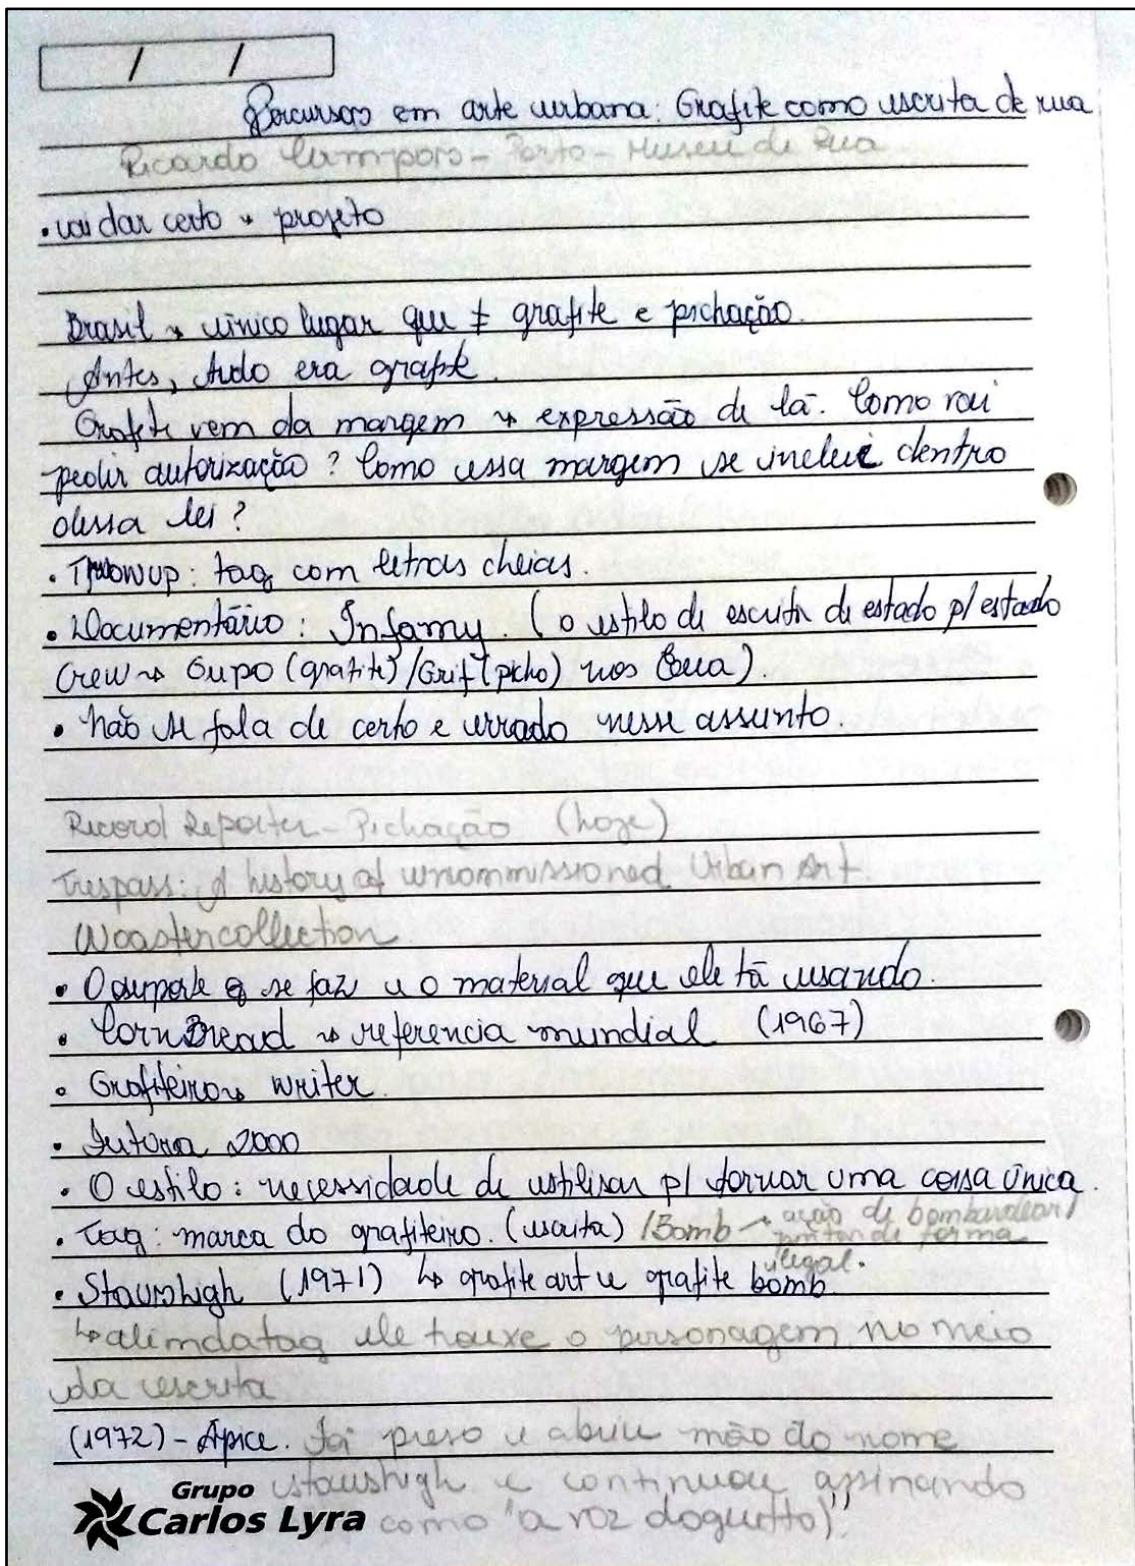 / /
Percursos em arte urbana: Grafite como escrita de rua
Ricardo - Porto - Museu de Rua
• vai dar certo → projeto
Brasil → único lugar que ≠ grafite e pichação.
Antes, tudo era grafite.
Grafite vem da margem → expressão de lá. Como vai
pedir autorização? Como essa margem se inclui dentro
dessa lei?
• Throwup: tag com letras cheias.
• Documentário: Infamy. (o estilo de escrita de estado p/ estado
Crew → Gupo (grafite)/Grif (picho) nos Eua).
• não se fala de certo e errado nesse assunto.
Record Reporter - Pichação (hoje)
Trespass: A history of unommissioned Urban Art.
Woostercollection
• O suporte q se faz e o material que ele tá usando.
• CornBread → referencia mundial (1967)
• Grafiteiro → writer.
• Futura 2000
• O estilo: necessidade de estilisar p/ tornar uma coisa única.
• Tag: marca do grafiteiro. (escrita) /Bomb → ação de bombardear/
pintar de forma
ilegal.
• Stayhigh (1971) ↳ grafite art e grafite bomb
↳ alémdatag ele trouxe o personagem no meio
da escrita
(1972) - Ápice. foi preso e abriu mão do nome
stayhigh e continuou assinando
como "a voz dogueto)"
Grupo
Carlos Lyra